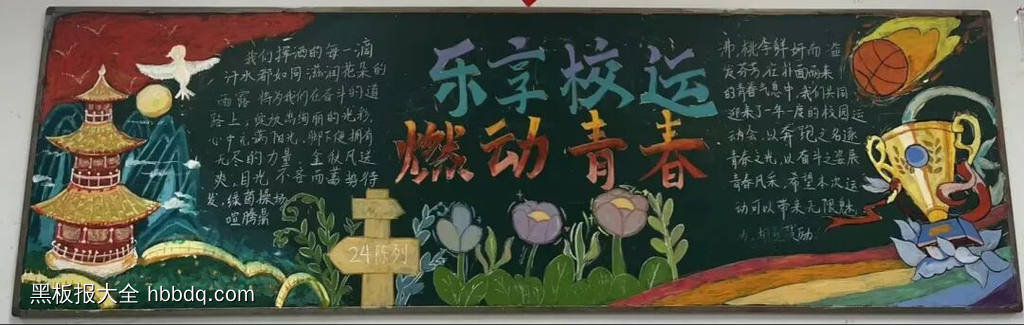 乐享校运
燃动青春
我们挥洒的每一滴
汗水都如同滋润花朵的
雨露 将为我们在奋斗的道
路上,绽放出绚丽的光彩,
心中充满阳光,脚下便拥有
无尽的力量,金秋风送
爽,目光不舍而蓄势待
发,绿茵操场,
喧腾
24陈列
桃李鲜妍而
发芬芳,在扑面而来
的青春气息中,我们共同
迎来了一年一度的校园运
动会,以奔跑之名逐
青春之光,以奋斗之姿展
青春风采,希望本次运
动可以带来无限魅
鼓励
黑板报大全 hbbdq.com